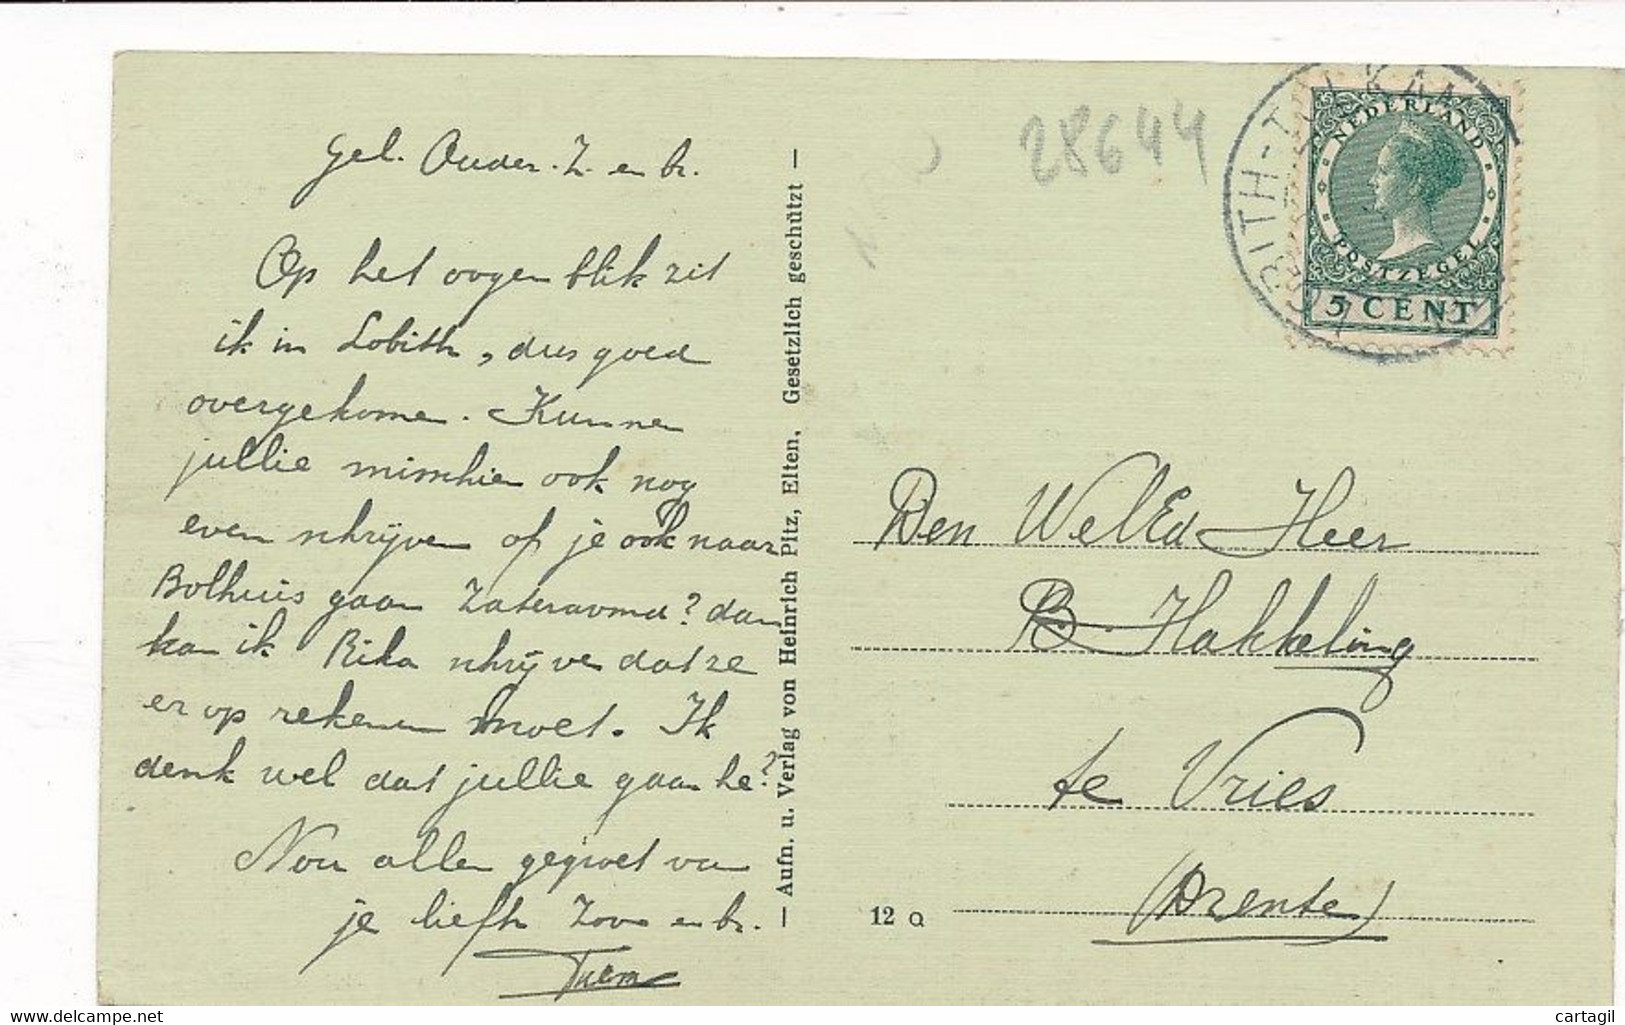 Gel. Ouder. Z. en br.
Op het oogenblik zit
ik in Lobith, dus goed
overgekomen. Kunnen
jullie misschien ook nog
even schrijven of je ook naar
Bolhuis gaan Zateravond? dan
kan ik Rika schrijven dat ze
er op rekenen moet. Ik
denk wel dat jullie gaan he?
Nou allen gegroet van
je liefh. Zoon en br.
— Aufn. u. Verlag von Heinrich Pitz, Elten, Gesetzlich geschützt —
28644
NEDERLAND
POSTZEGEL
5 CENT
LOBITH-TOLKAMER
Den WelEd Heer
B. Hakkeling
te Vries
(Drente)
12 Q
cartagil